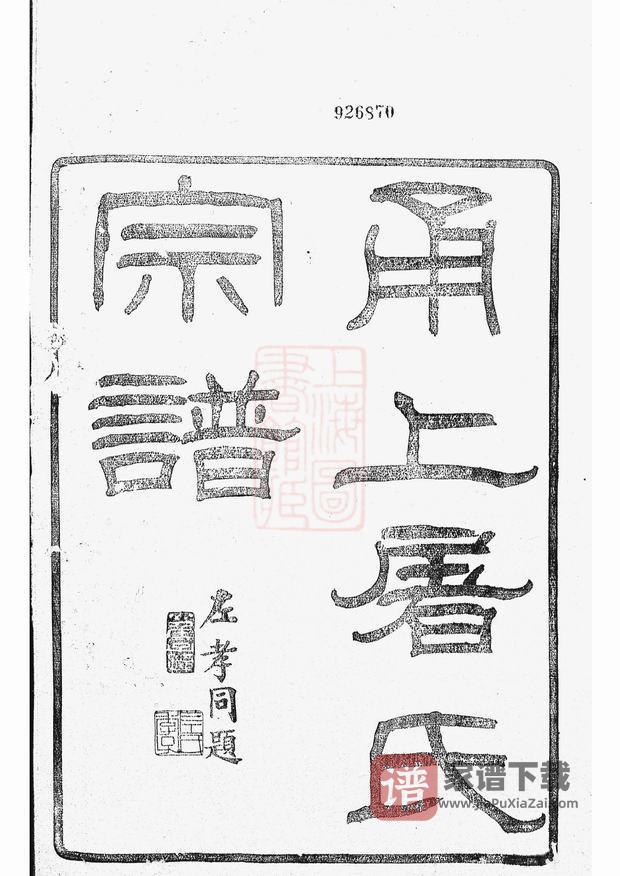 926870
甬上屠氏
宗譜
左孝同題
上海圖書館藏
谱 家谱下载
www.JiaPuXiaZai.com